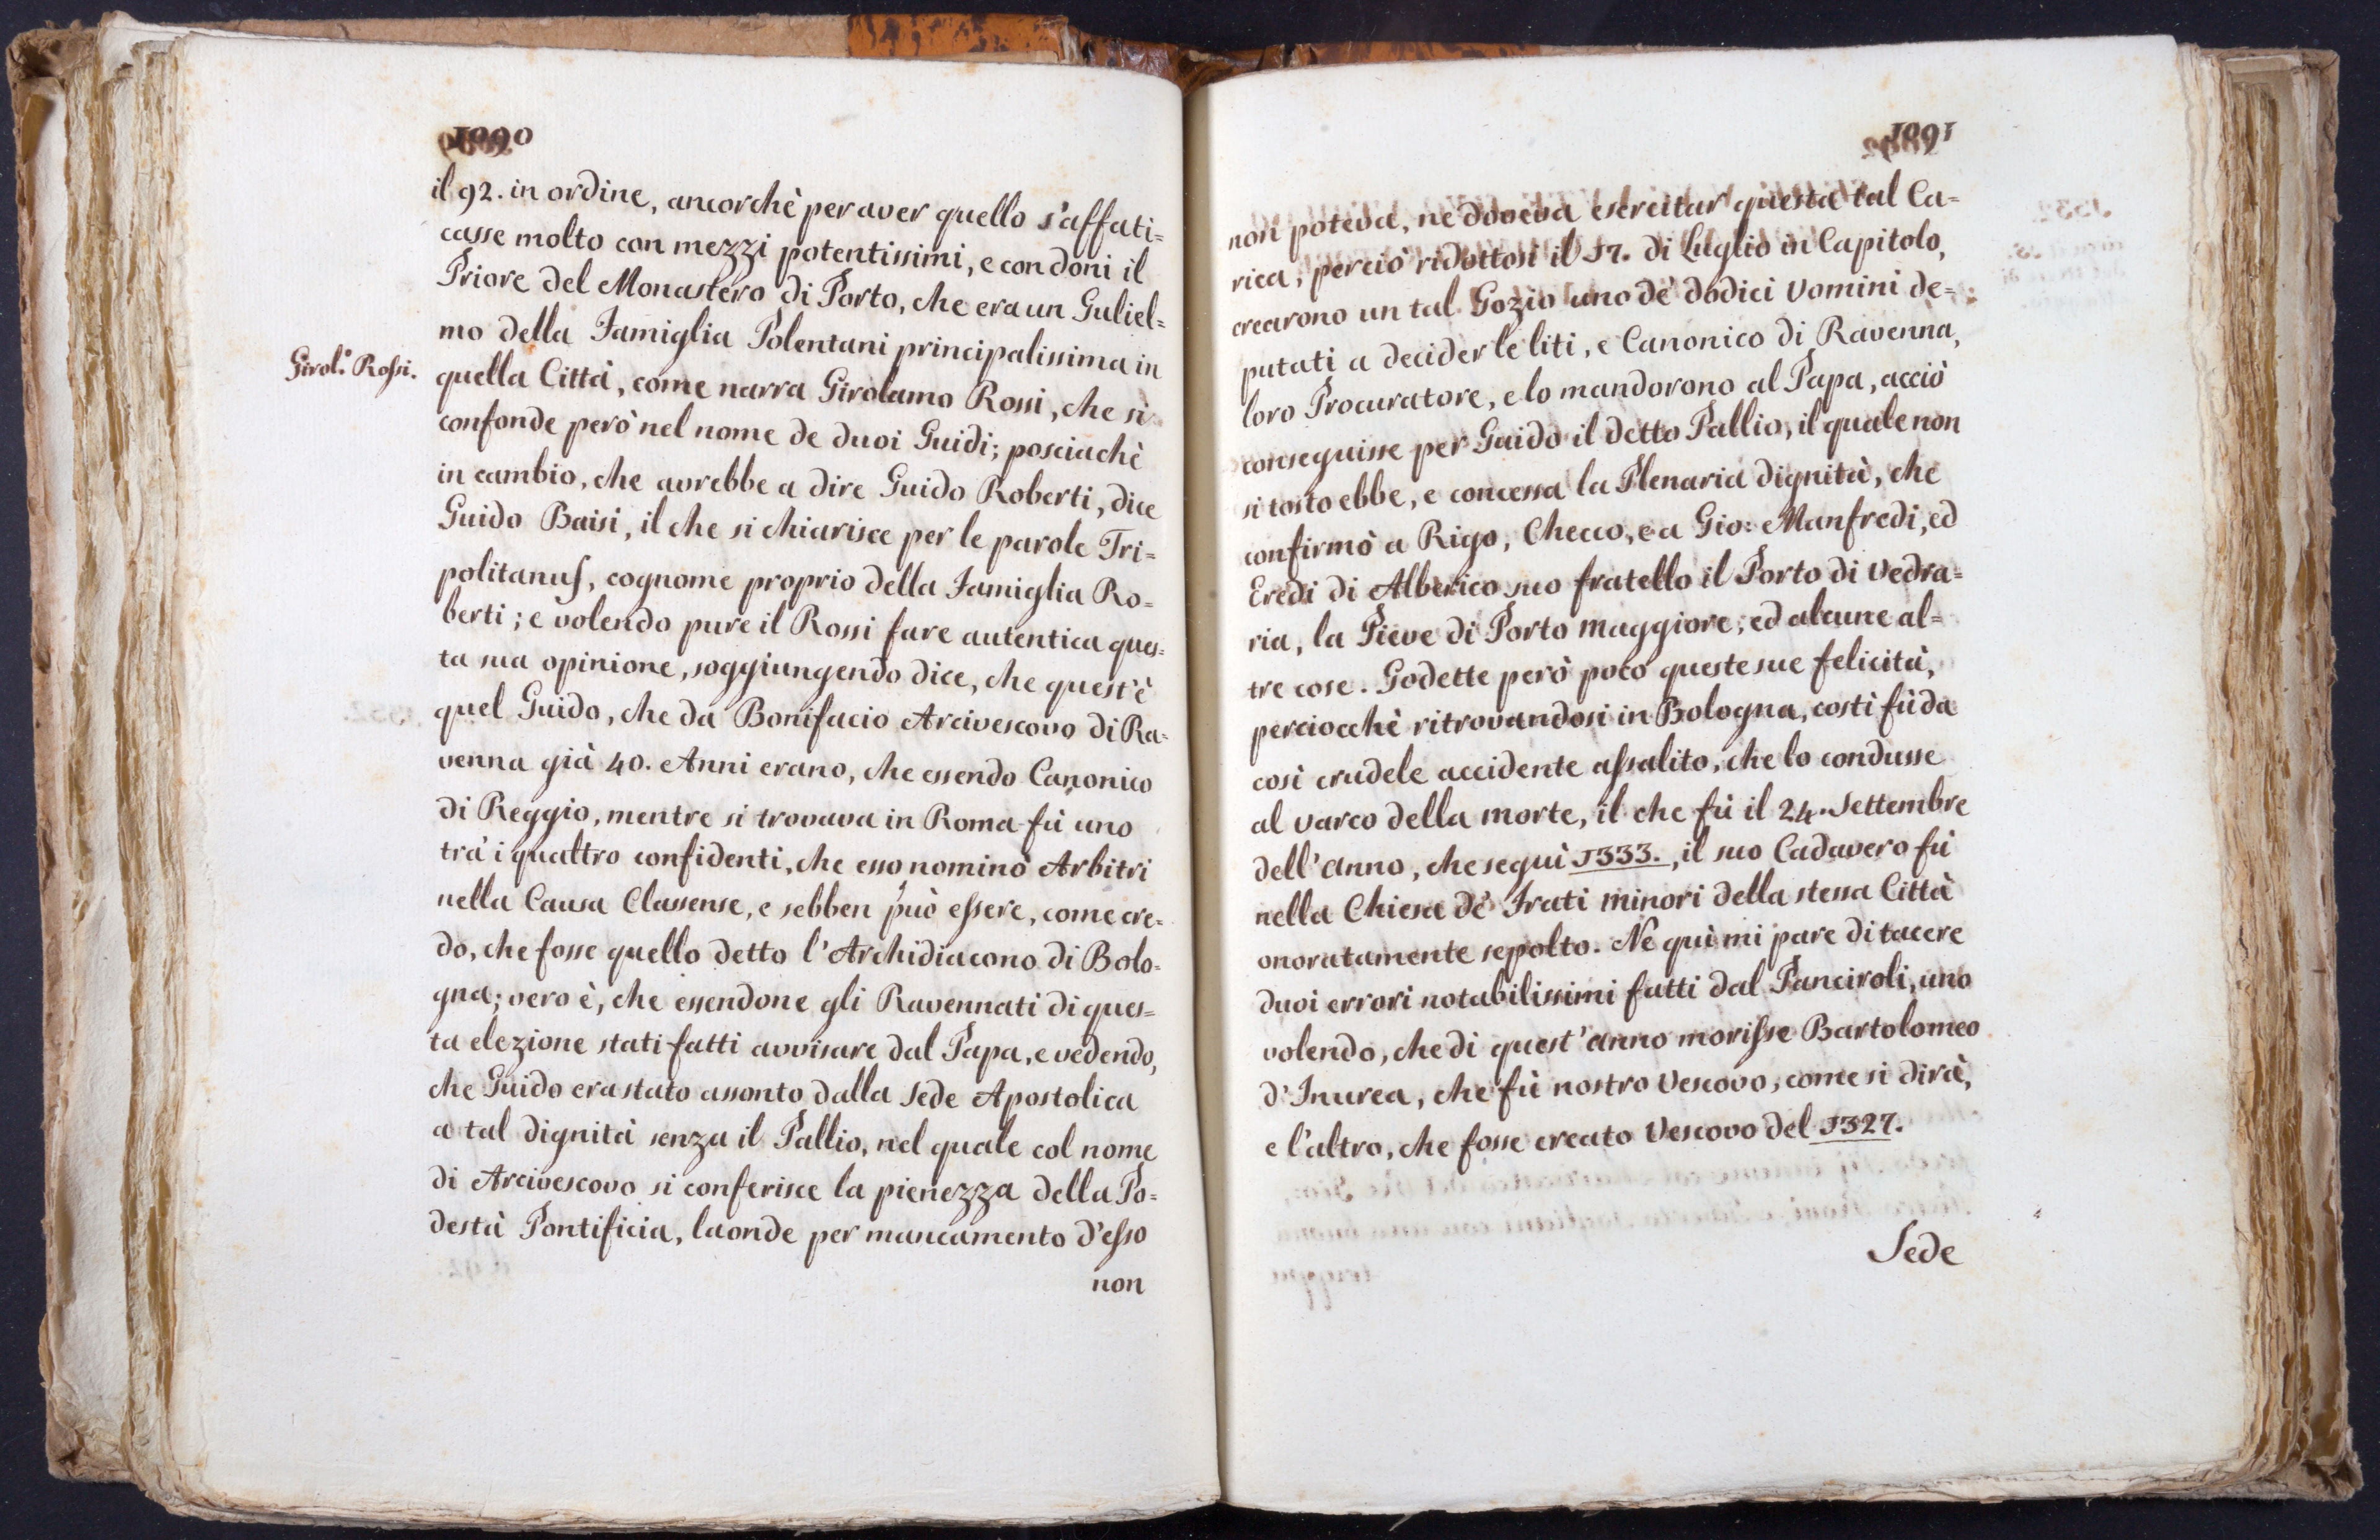 1090
il 92. in ordine, ancorchè per aver quello s'affati=
casse molto con mezzi potentissimi, e con doni il
Priore del Monastero di Porto, che era un Guliel=
mo della Famiglia Polentani principalissima in
Girol.º Rossi.
quella Città, come narra Girolamo Rossi, che si
confonde però nel nome de duoi Guidi; posciachè
in cambio, che avrebbe a dire Guido Roberti, dice
Guido Baisi, il che si chiarisce per le parole Tri=
politanus, cognome proprio della Famiglia Ro=
berti; e volendo pure il Rossi fare autentica ques=
ta sua opinione, soggiungendo dice, che quest'è
quel Guido, che da Bonifacio Arcivescovo di Ra=
venna già 40. Anni erano, che essendo Canonico
di Reggio, mentre si trovava in Roma fù uno
trà i quattro confidenti, che esso nominò Arbitri
nella Causa Classense, e sebben può essere, come cre=
do, che fosse quello detto l'Archidiacono di Bolo=
gna; vero è, che essendone gli Ravennati di ques=
ta elezione stati fatti avvisare dal Papa, e vedendo,
che Guido era stato assonto dalla Sede Apostolica
a tal dignità senza il Pallio, nel quale col nome
di Arcivescovo si conferisce la pienezza della Po=
destà Pontificia, laonde per mancamento d'esso
non
1091
non poteva, ne doveva esercitar questa tal Ca=
rica, perciò ridottosi il 17. di Luglio in Capitolo,
crearono un tal Gozio uno de' dodici Uomini de=
putati a decider le liti, e Canonico di Ravenna,
loro Procuratore, e lo mandorono al Papa, acciò
conseguisse per Guido il detto Pallio, il quale non
si tosto ebbe, e concessa la Plenaria dignità, che
confirmò a Rigo, Checco, e a Gio: Manfredi, ed
Eredi di Alberico suo fratello il Porto di Vedra=
ria, la Pieve di Porto maggiore, ed alcune al=
tre cose. Godette però poco queste sue felicità,
perciocchè ritrovandosi in Bologna, costì fù da
così crudele accidente assalito, che lo condusse
al varco della morte, il che fù il 24. Settembre
dell'anno, che seguì 1333., il suo Cadavero fù
nella Chiesa de' Frati minori della stessa Città
onoratamente sepolto. Ne quì mi pare di tacere
duoi errori notabilissimi fatti dal Panciroli, uno
volendo, che di quest'anno morisse Bartolomeo
d'Inurea, che fù nostro Vescovo, come si dirà,
e l'altro, che fosse creato Vescovo del 1327.
Sede